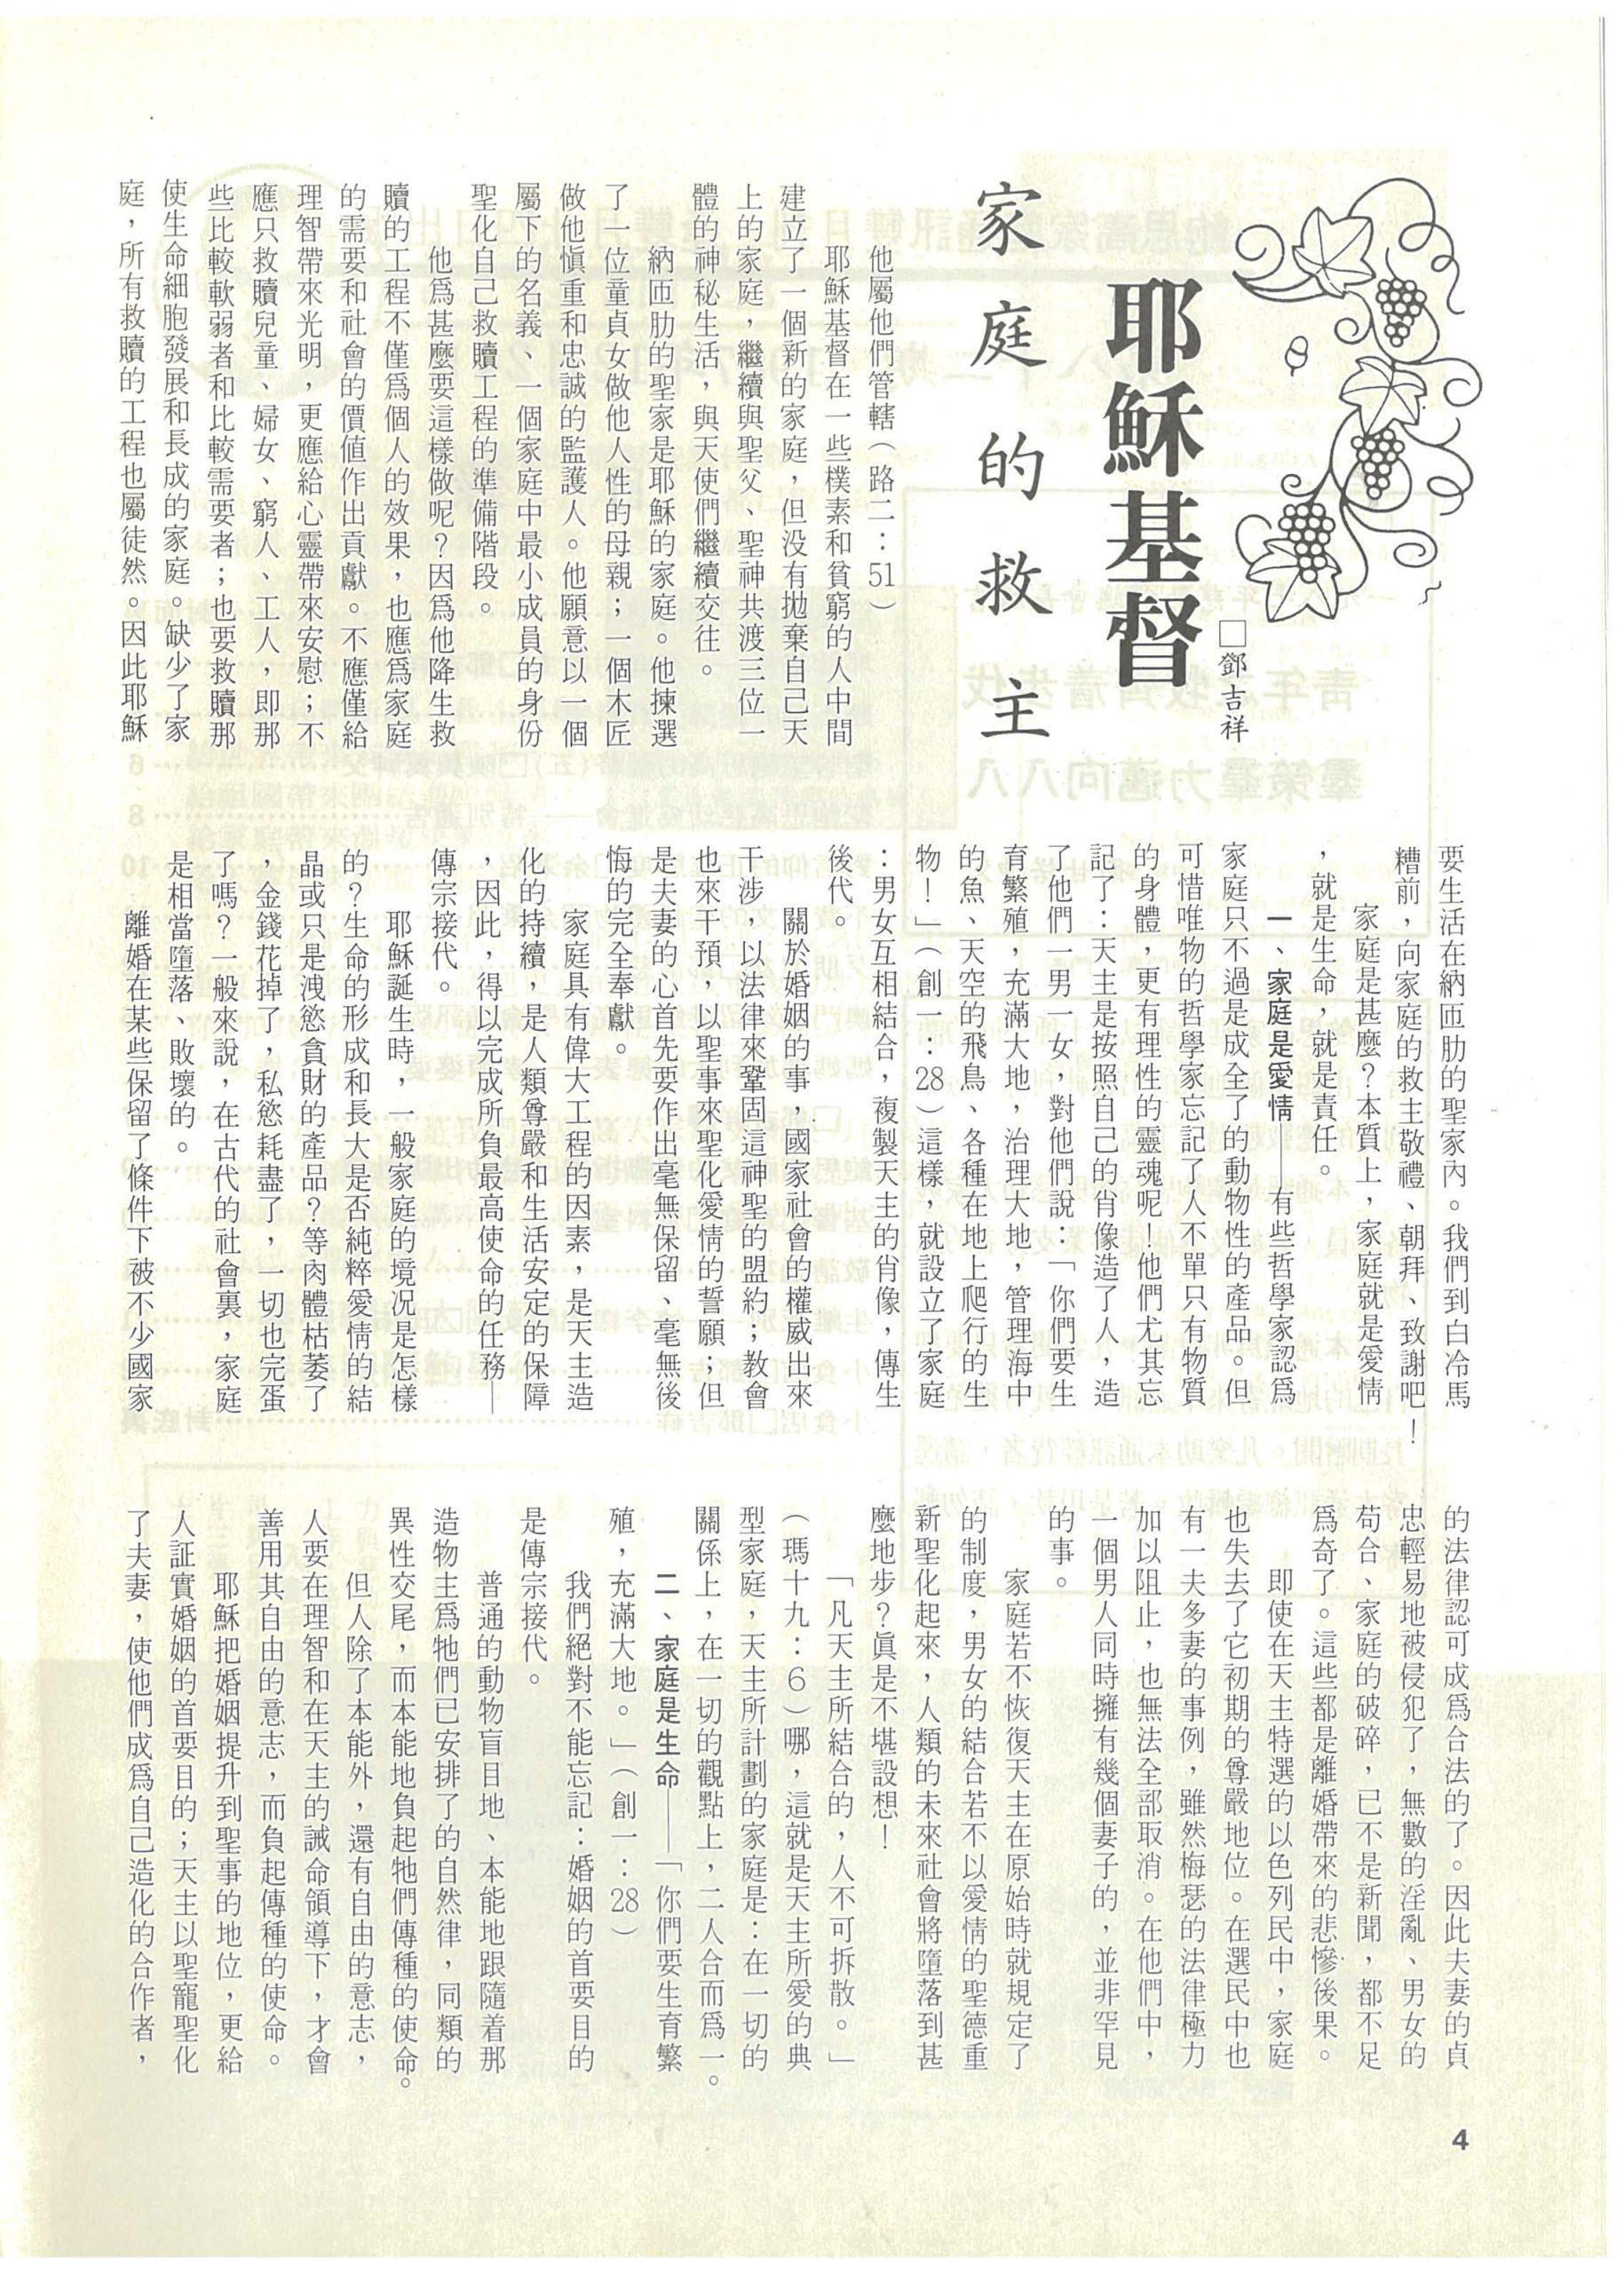 耶穌基督
家庭的救主
□鄧吉祥
他屬他們管轄（路二：51）
耶穌基督在一些樸素和貧窮的人中間
建立了一個新的家庭，但没有拋棄自己天
上的家庭，繼續與聖父、聖神共渡三位一
體的神秘生活，與天使們繼續交往。
納匝肋的聖家是耶穌的家庭。他揀選
了一位童貞女做他人性的母親；一個木匠
做他愼重和忠誠的監護人。他願意以一個
屬下的名義、一個家庭中最小成員的身份
聖化自己救贖工程的準備階段。
他爲甚麼要這樣做呢？因爲他降生救
贖的工程不僅爲個人的效果，也應爲家庭
的需要和社會的價值作出貢獻。不應僅給
理智帶來光明，更應給心靈帶來安慰；不
應只救贖兒童、婦女、窮人、工人，即那
些比較軟弱者和比較需要者；也要救贖那
使生命細胞發展和長成的家庭。缺少了家
庭，所有救贖的工程也屬徒然。因此耶穌
要生活在納匝肋的聖家內。我們到白冷馬
糟前，向家庭的救主敬禮、朝拜、致謝吧！
家庭是甚麼？本質上，家庭就是愛情
，就是生命，就是責任。
一、家庭是愛情——有些哲學家認爲
家庭只不過是成全了的動物性的產品。但
可惜唯物的哲學家忘記了人不單只有物質
的身體，更有理性的靈魂呢！他們尤其忘
記了：天主是按照自己的肖像造了人，造
了他們一男一女，對他們說：「你們要生
育繁殖，充滿大地，治理大地，管理海中
的魚、天空的飛鳥、各種在地上爬行的生
物！」（創一：28）這樣，就設立了家庭
：男女互相結合，複製天主的肖像，傳生
後代。
關於婚姻的事，國家社會的權威出來
干涉，以法律來鞏固這神聖的盟約；教會
也來干預，以聖事來聖化愛情的誓願；但
是夫妻的心首先要作出毫無保留、毫無後
悔的完全奉獻。
家庭具有偉大工程的因素，是天主造
化的持續，是人類尊嚴和生活安定的保障
，因此，得以完成所負最高使命的任務—
傳宗接代。
耶穌誕生時，一般家庭的境況是怎樣
的？生命的形成和長大是否純粹愛情的結
晶或只是洩慾貪財的產品？等肉體枯萎了
，金錢花掉了，私慾耗盡了，一切也完蛋
了嗎？一般來說，在古代的社會裏，家庭
是相當墮落、敗壞的。
離婚在某些保留了條件下被不少國家
的法律認可成爲合法的了。因此夫妻的貞
忠輕易地被侵犯了，無數的淫亂、男女的
苟合、家庭的破碎，已不是新聞，都不足
爲奇了。這些都是離婚帶來的悲慘後果。
即使在天主特選的以色列民中，家庭
也失去了它初期的尊嚴地位。在選民中也
有一夫多妻的事例，雖然梅瑟的法律極力
加以阻止，也無法全部取消。在他們中，
一個男人同時擁有幾個妻子的，並非罕見
的事。
家庭若不恢復天主在原始時就規定了
的制度，男女的結合若不以愛情的聖德重
新聖化起來，人類的未來社會將墮落到甚
麼地步？眞是不堪設想！
「凡天主所結合的，人不可拆散。」
（瑪十九：6）哪，這就是天主所愛的典
型家庭，天主所計劃的家庭是：在一切的
關係上，在一切的觀點上，二人合而爲一。
二、家庭是生命——「你們要生育繁
殖，充滿大地。」（創一：28）
我們絕對不能忘記：婚姻的首要目的
是傳宗接代。
普通的動物盲目地、本能地跟隨着那
造物主爲牠們已安排了的自然律，同類的
異性交尾，而本能地負起牠們傳種的使命。
但人除了本能外，還有自由的意志，
人要在理智和在天主的誡命領導下，才會
善用其自由的意志，而負起傳種的使命。
耶穌把婚姻提升到聖事的地位，更給
人証實婚姻的首要目的；天主以聖寵聖化
了夫妻，使他們成爲自己造化的合作者，
4